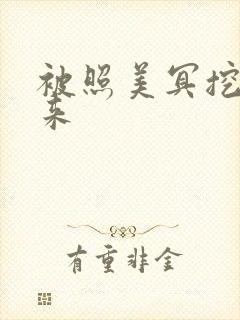 被照美冥挖
来
有重非金